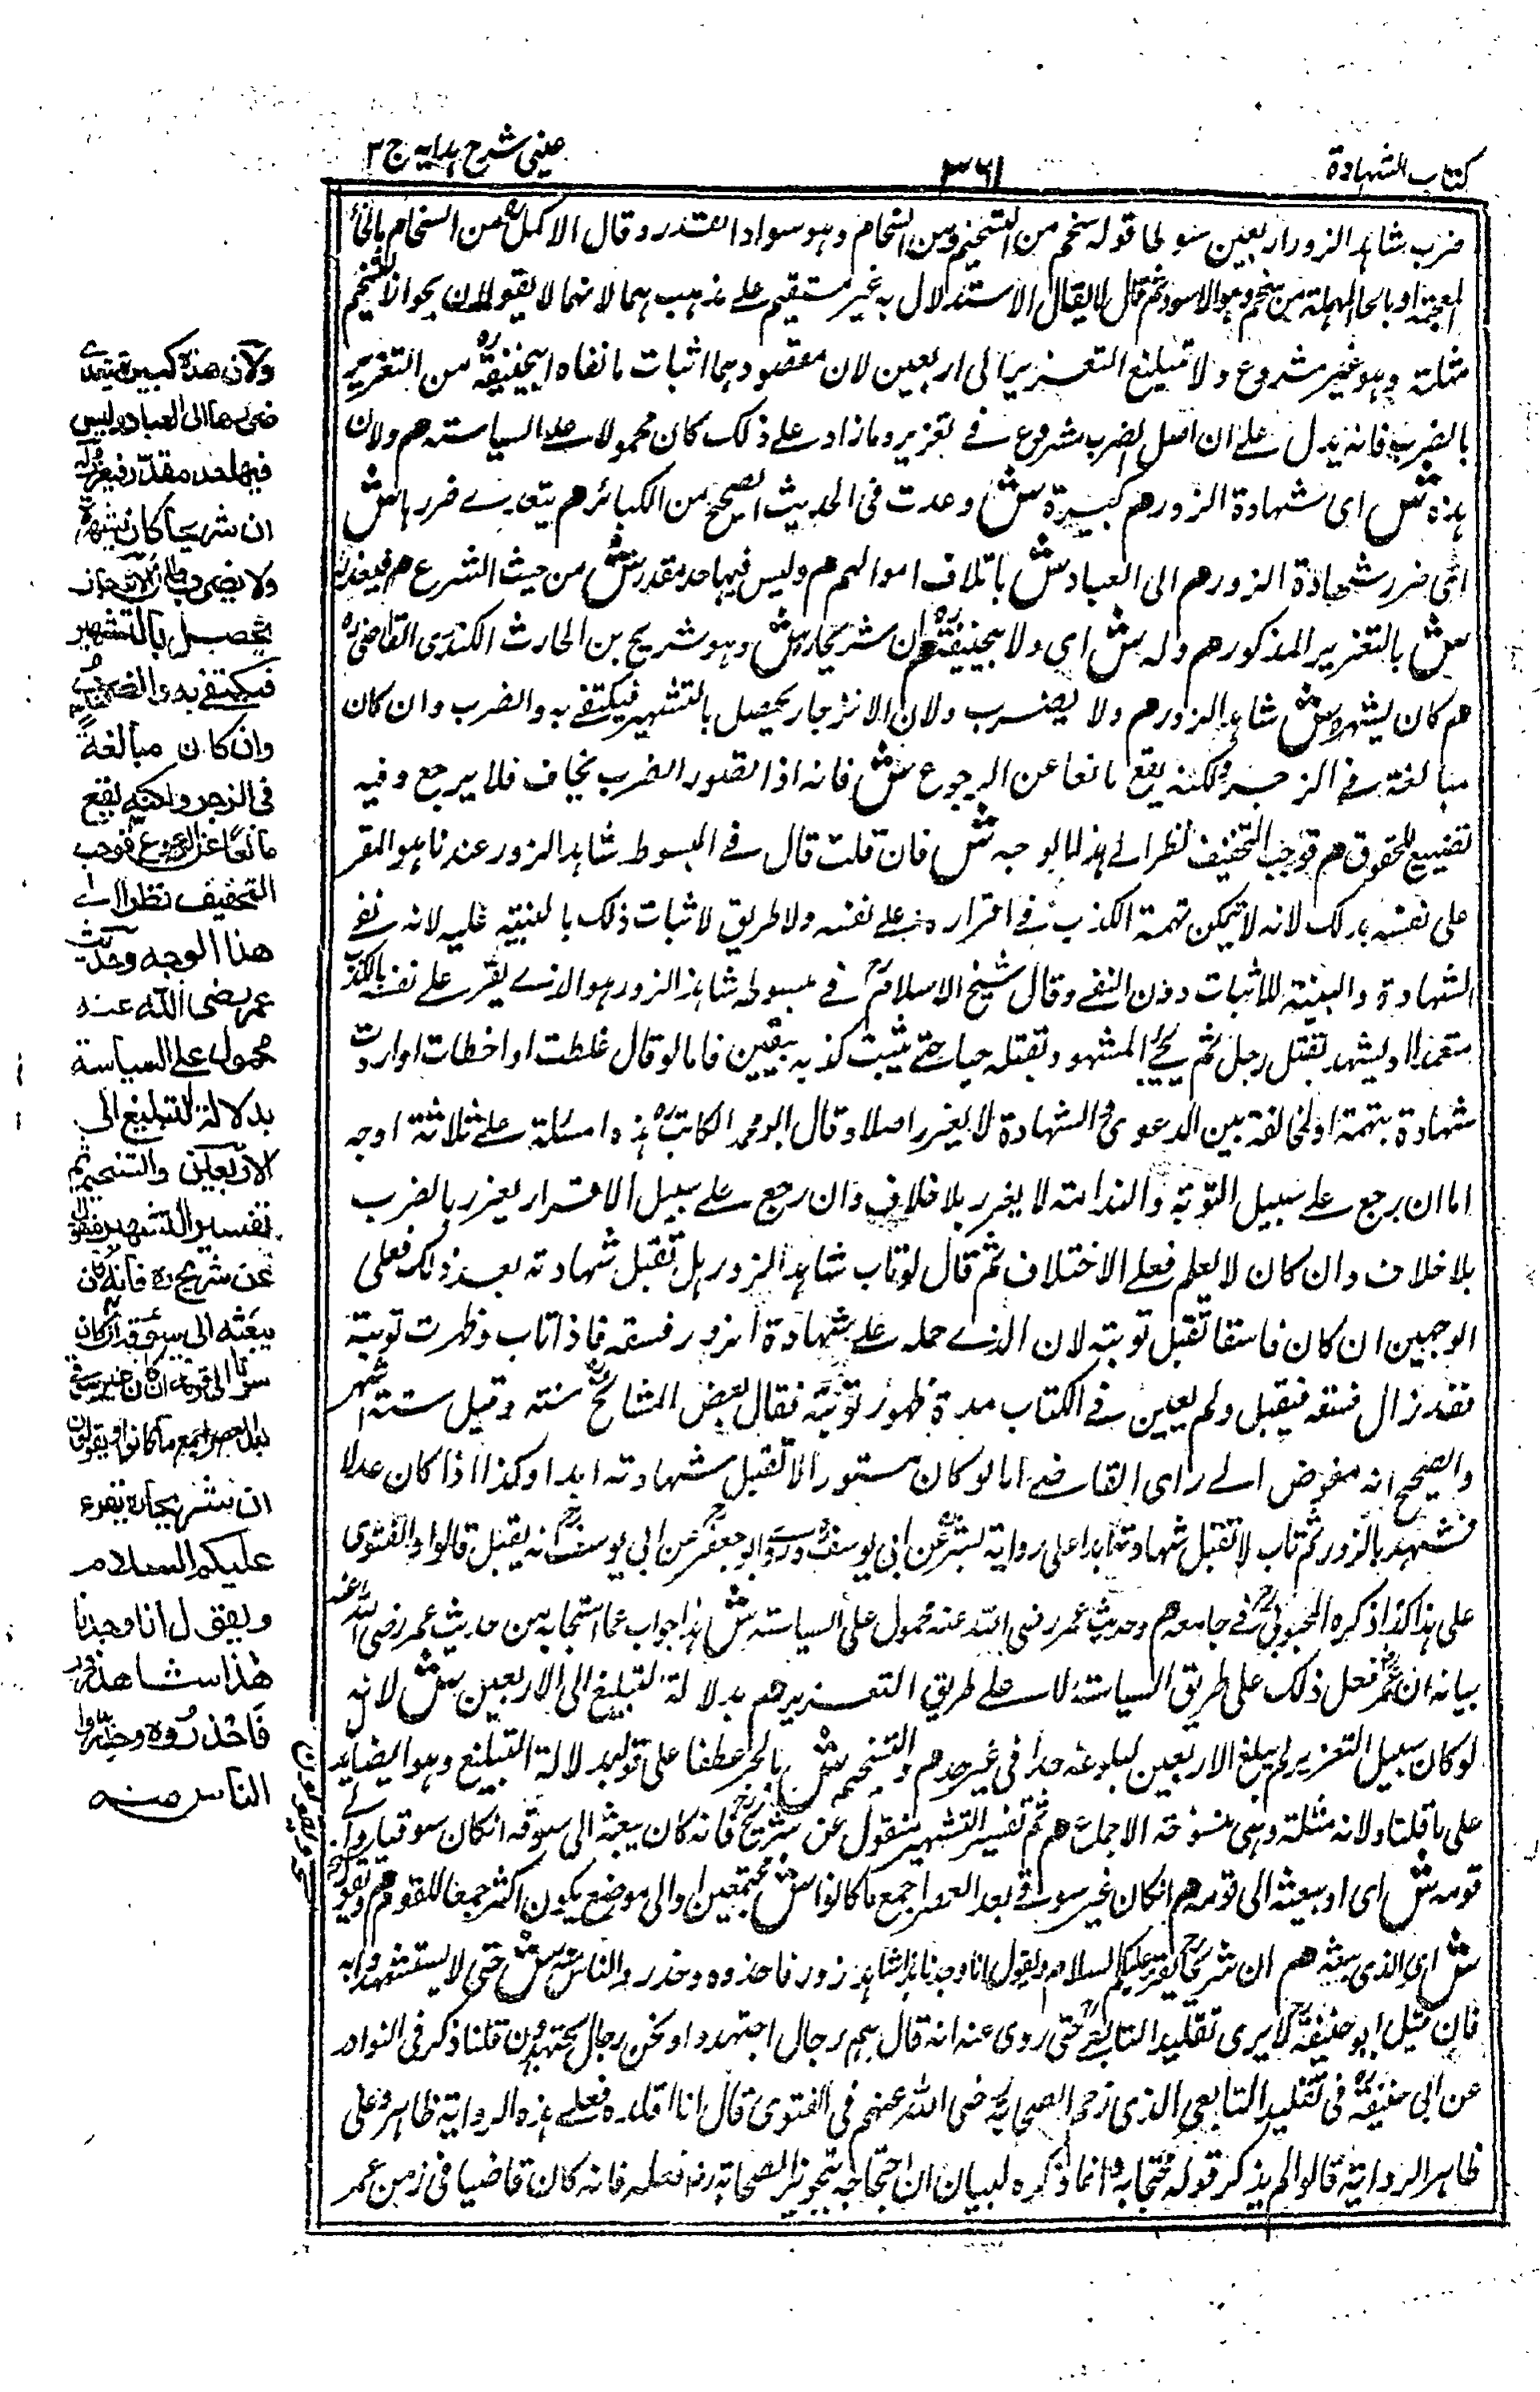 كتاب الشهادة
٣٦١
عينى شرح هدايه ج ٣
ضرب شاهد الزور اربعين سوطا قوله سخم من التسخيم ومن السخام وهو سواد القدر وقال الاكمل من السخام بالخاء
المعجمة او بالحاء المهملة من سحم وهو الاسود ثم قال لا يقال الاستدلال به غير مستقيم على مذهبهما لانهما لا يقولان بجواز التسخيم
مثلة وهو غير مشروع ولا تبليغ التعزير الى اربعين لان مقصودهما اثبات ما نفاه ابو حنيفة من التعزير
بالضرب فانه يدل على ان اصل الضرب مشروع فى تعزير وما زاد على ذلك كان محمولا على السياسة هم ولان
هذه ش اى شهادة الزور هم كبيرة ش وعدت فى الحديث الصحيح من الكبائر هم يتعدى ضررها ش
اى ضرر شهادة الزور هم الى العباد ش باتلاف اموالهم هم وليس فيها حد مقدر ش من حيث الشرع هم فيعزر
ش بالتعزير المذكور هم وله ش اى ولابيحنيفة هم ان شريحا ش وهو شريح بن الحارث الكندى القاضى
هم كان يشهر ش شاهد الزور هم ولا يضرب ولان الانزجار يحصل بالتشهير فيكتفى به والضرب وان كان
مبالغة فى الزجر ولكنه يقع مانعا عن الرجوع ش فانه اذا تصور الضرب يخاف فلا يرجع وفيه
تضييع للحقوق هم فوجب التخفيف نظرا لى هذا الوجه ش فان قلت قال فى المبسوط شاهد الزور عندنا هو المقر
على نفسه بذلك لانه لا تمكن تهمة الكذب فى اقراره على نفسه ولا طريق لاثبات ذلك بالبينة عليه لانه نفى
الشهادة والبينة للاثبات دون النفى وقال شيخ الاسلام فى مبسوطه شاهد الزور هو الذى يقر على نفسه بالكذب
متعمدا او يشهد بقتل رجل ثم يجئ المشهود بقتله حيا حتى يثبت كذبه بيقين فاما لو قال غلطت او اخطات او اردت
شهادة بتهمة او لمخالفة بين الدعوى والشهادة لا يعزر اصلا وقال ابو محمد الكاتب هذه المسئلة على ثلاثة اوجه
اما ان رجع على سبيل التوبة والندامة لا يعزر بلا خلاف وان رجع على سبيل الاقرار يعزر بالضرب
بلا خلاف وان كان لا يعلم فعلى الاختلاف ثم قال لو تاب شاهد الزور هل تقبل شهادته بعد ذلك فعلى
الوجهين ان كان فاسقا تقبل توبته لان الذى حمله على شهادة الزور فسقه فاذا تاب وظهرت توبته
فقد زال فسقه فيقبل ولم يعين فى الكتاب مدة ظهور توبته فقال بعض المشائخ سنة وقيل ستة اشهر
والصحيح انه مفوض الى راى القاضى اما لو كان مستورا لا تقبل شهادته ابدا وكذا اذا كان عدلا
فشهد بالزور ثم تاب لا تقبل شهادته ابدا على رواية بشر عن ابى يوسف وروى ابو جعفر عن ابى يوسف انه يقبل قالوا والفتوى
على هذا كذا ذكره المحبوبى فى جامعه هم وحديث عمر رضى الله عنه محمول على السياسة ش هذا جواب عما استجابه من حديث عمر رضى الله عنه
بيانه ان عمر فعل ذلك على طريق السياسة لا على طريق التعزير هم بدلالة التبليغ الى الاربعين ش لانه
لو كان سبيل التعزير لم يبلغ الاربعين لبلوغه حدا فى غير حد هم والتسخيم ش بالجر عطفا على قوله بدلالة التبليغ وهو ايضا يدل
على ما قلنا ولانه مثلة وهى منسوخة الاجماع هم ثم تفسير التشهير منقول عن شريح فانه كان يبعثه الى سوقه ان كان سوقيا والى
قومه ش اى او يبعثه الى قومه هم ان كان غير سوقى بعد العصر اجمع ما كانوا ش مجتمعين او الى موضع يكون اكثر جمعا للقوم هم ويقول
ش اى الذى بعثه هم ان شريحا يقرئ عليكم السلام ويقول انا وجدنا هذا شاهد زور فاحذروه وحذروا الناس منه ش حتى لا يستشهدوا به
فان قيل ابو حنيفة لا يرى تقليد التابعى حتى روى عنه انه قال هم رجال اجتهدوا ونحن رجال نجتهد قلنا ذكر فى النوادر
عن ابى حنيفة فى تقليد التابعى الذى زاحم الصحابة رضى الله عنهم فى الفتوى قال انا اقلده فعلى هذه الرواية ظاهر وعلى
ظاهر الرواية قالوا لم يذكر قوله محتجا به انما ذكره لبيان ان احتجاجه بتجويز الصحابة رضـ فعله فانه كان قاضيا فى زمن عمر
ولان هذه كبيرة يتعدى
ضررها الى العباد وليس
فيها حد مقدر فيعزر وله
ان شريحا كان يشهر
ولا يضرب ولان الانزجار
يحصل بالتشهير
فيكتفى به والضرب
وان كان مبالغة
فى الزجر ولكنه يقع
مانعا عن الرجوع فوجب
التخفيف نظرا الى
هذا الوجه وحديث
عمر رضى الله عنه
محمول على السياسة
بدلالة التبليغ الى
الاربعين والتسخيم ثم
تفسير التشهير منقول
عن شريح ره فانه كان
يبعثه الى سوقه ان كان
سوقيا الى قومه ان كان غير سوقى
بعد العصر اجمع ما كانوا ويقول
ان شريحا يقرء
عليكم السلام
ويقول انا وجدنا
هذا شاهد زور
فاحذروه وحذروا
الناس منه